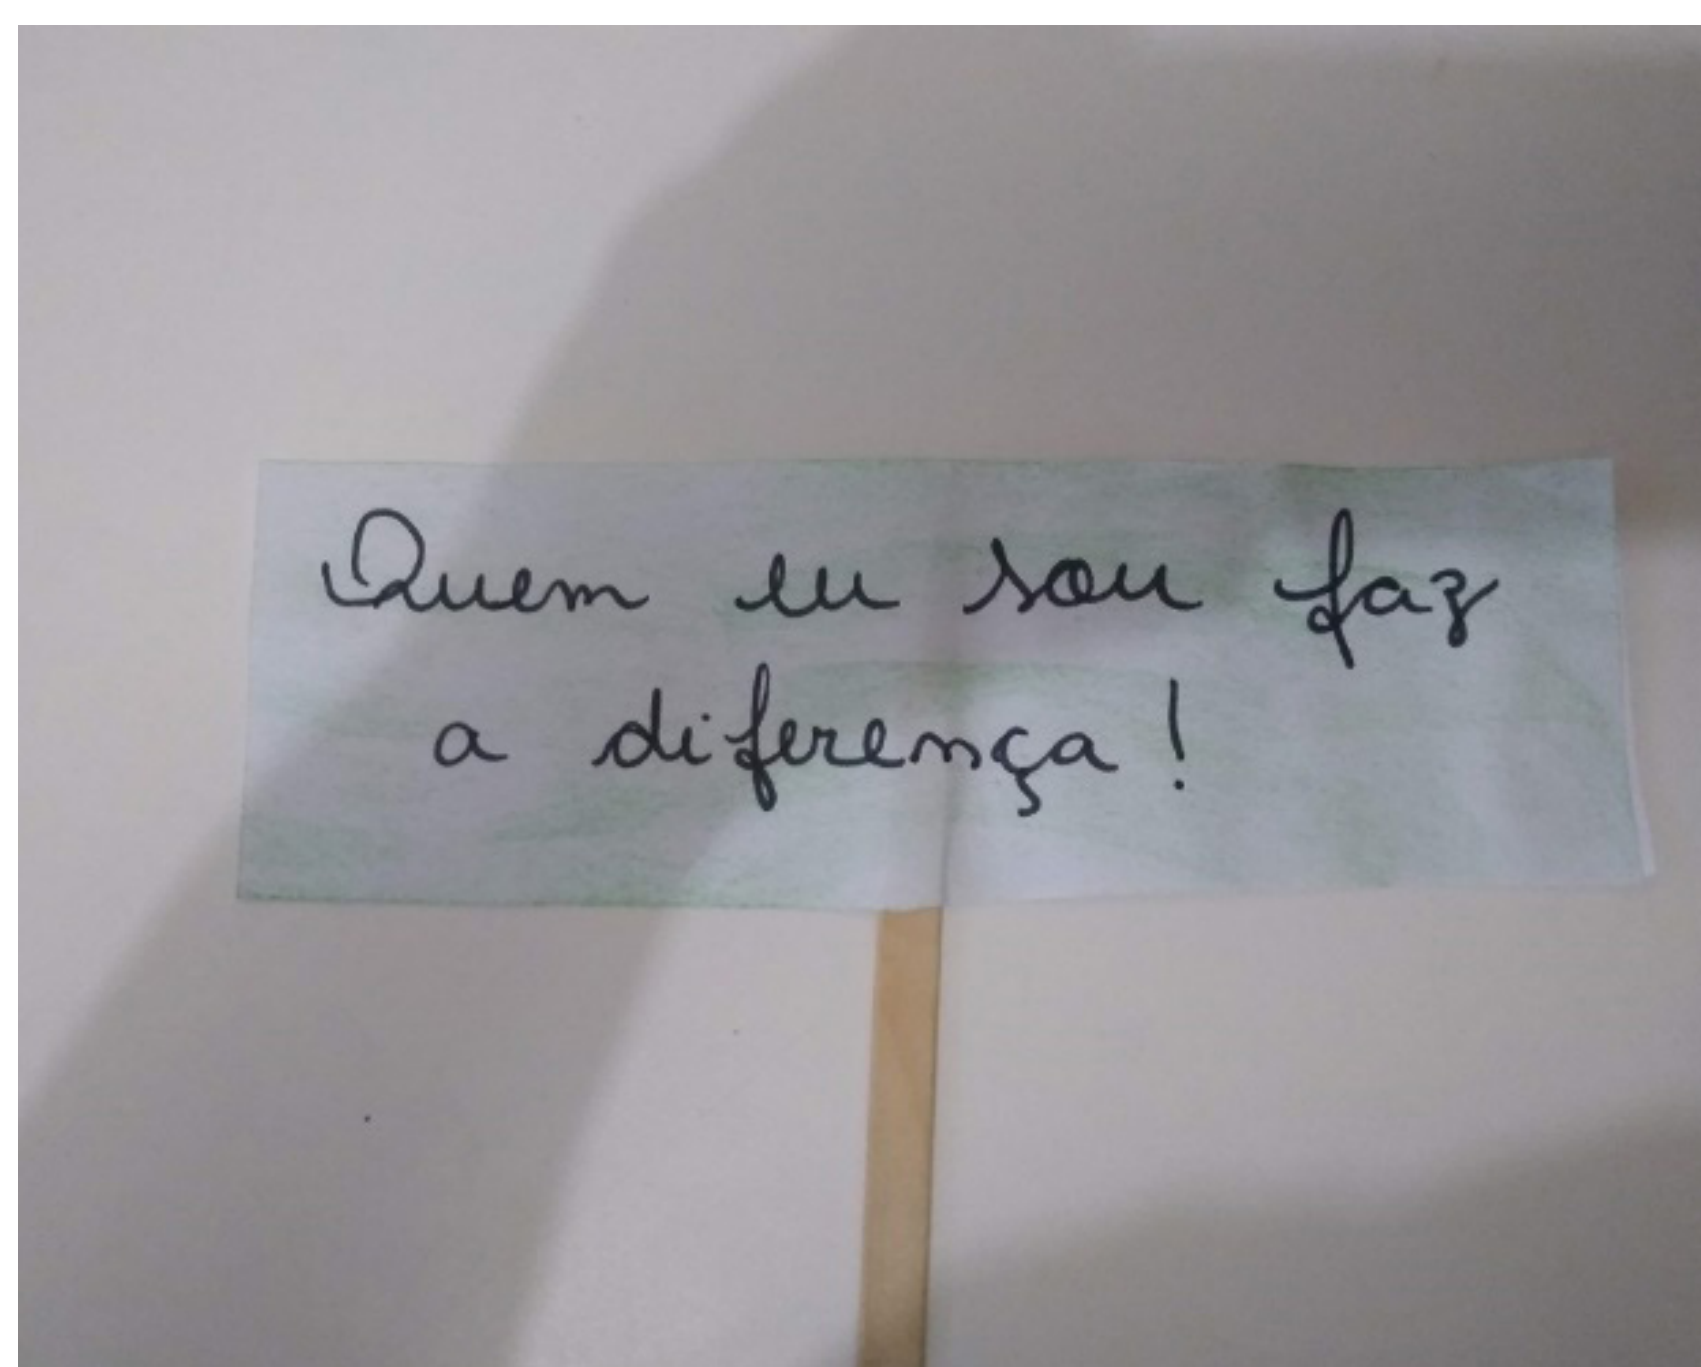 Quem eu sou faz
a diferença!